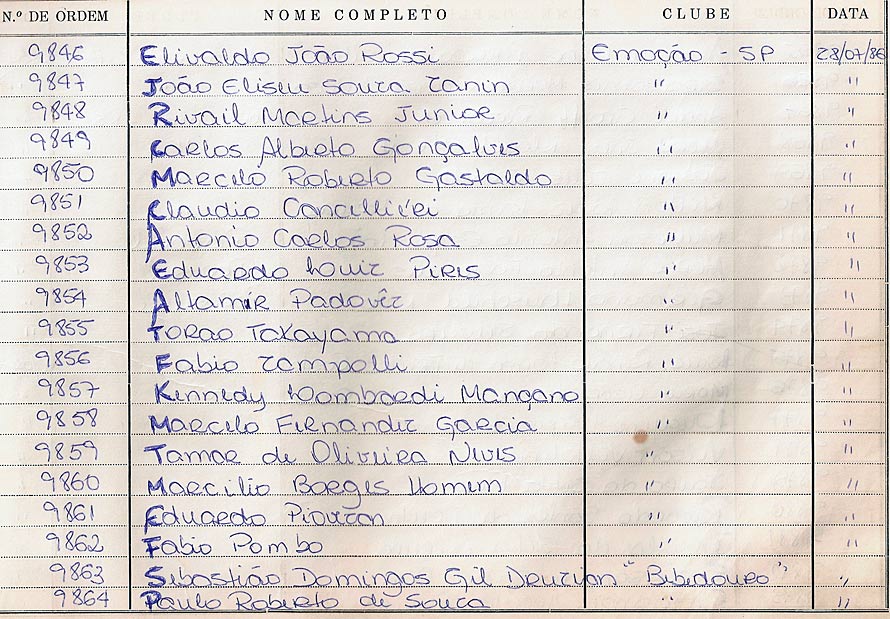 N.º DE ORDEM NOME COMPLETO CLUBE DATA
9846 Elivaldo João Rossi Emoção - SP 28/07/86
9847 João Eliseu Souza Zanin " "
9848 Rivail Martins Junior " "
9849 Carlos Alberto Gonçalves " "
9850 Marcelo Roberto Gastaldo " "
9851 Claudio Cancillieri " "
9852 Antonio Carlos Rosa " "
9853 Eduardo Louiz Pires " "
9854 Altamir Padovêz " "
9855 Torao Takayama " "
9856 Fabio Zampolli " "
9857 Kennedy Lombardi Mançano " "
9858 Marcelo Fernandez Garcia " "
9859 Tamar de Oliveira Neves " "
9860 Marcilio Borges Homem " "
9861 Eduardo Piovezan " "
9862 Fabio Pombo " "
9863 Sebastião Domingos Gil "Bebedouro" "
9864 Paulo Roberto de Souza " "